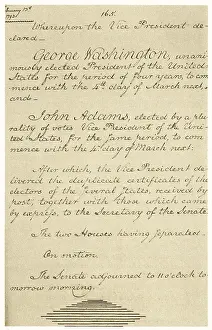 165.
1793
Whereupon the Vice President de-
clared—
George Washington, unani-
mously elected President of the United
States for the period of four years, to com-
mence with the 4th day of March next,
and—
John Adams, elected by a plu-
rality of votes Vice President of the Uni-
ted States, for the same period, to com-
mence with the 4th day of March next.
After which, the Vice President de-
livered the duplicate certificates of the
electors of the several States, received by
post, together with those which came
by express, to the Secretary of the Senate.
The two Houses having separated.
On motion
The Senate adjourned to 11 o'clock to
morrow morning.